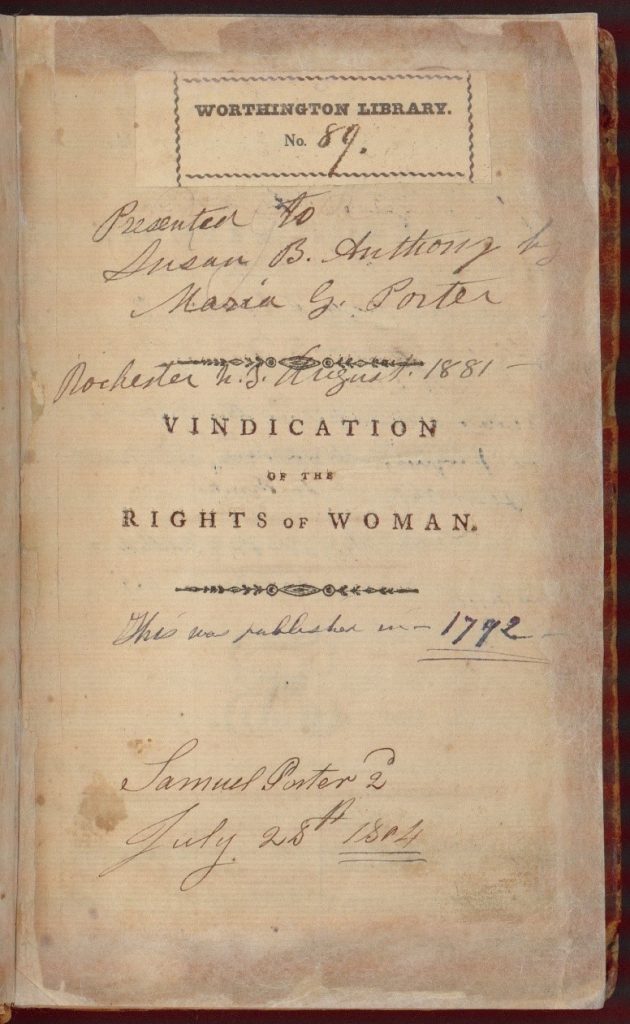 WORTHINGTON LIBRARY.
No. 89.
Presented to
Susan B. Anthony by
Maria G. Porter
Rochester N.Y. August. 1881 —
VINDICATION
OF THE
RIGHTS OF WOMAN.
This was published in — 1792 —
Samuel Porter 2d
July 28th 1804